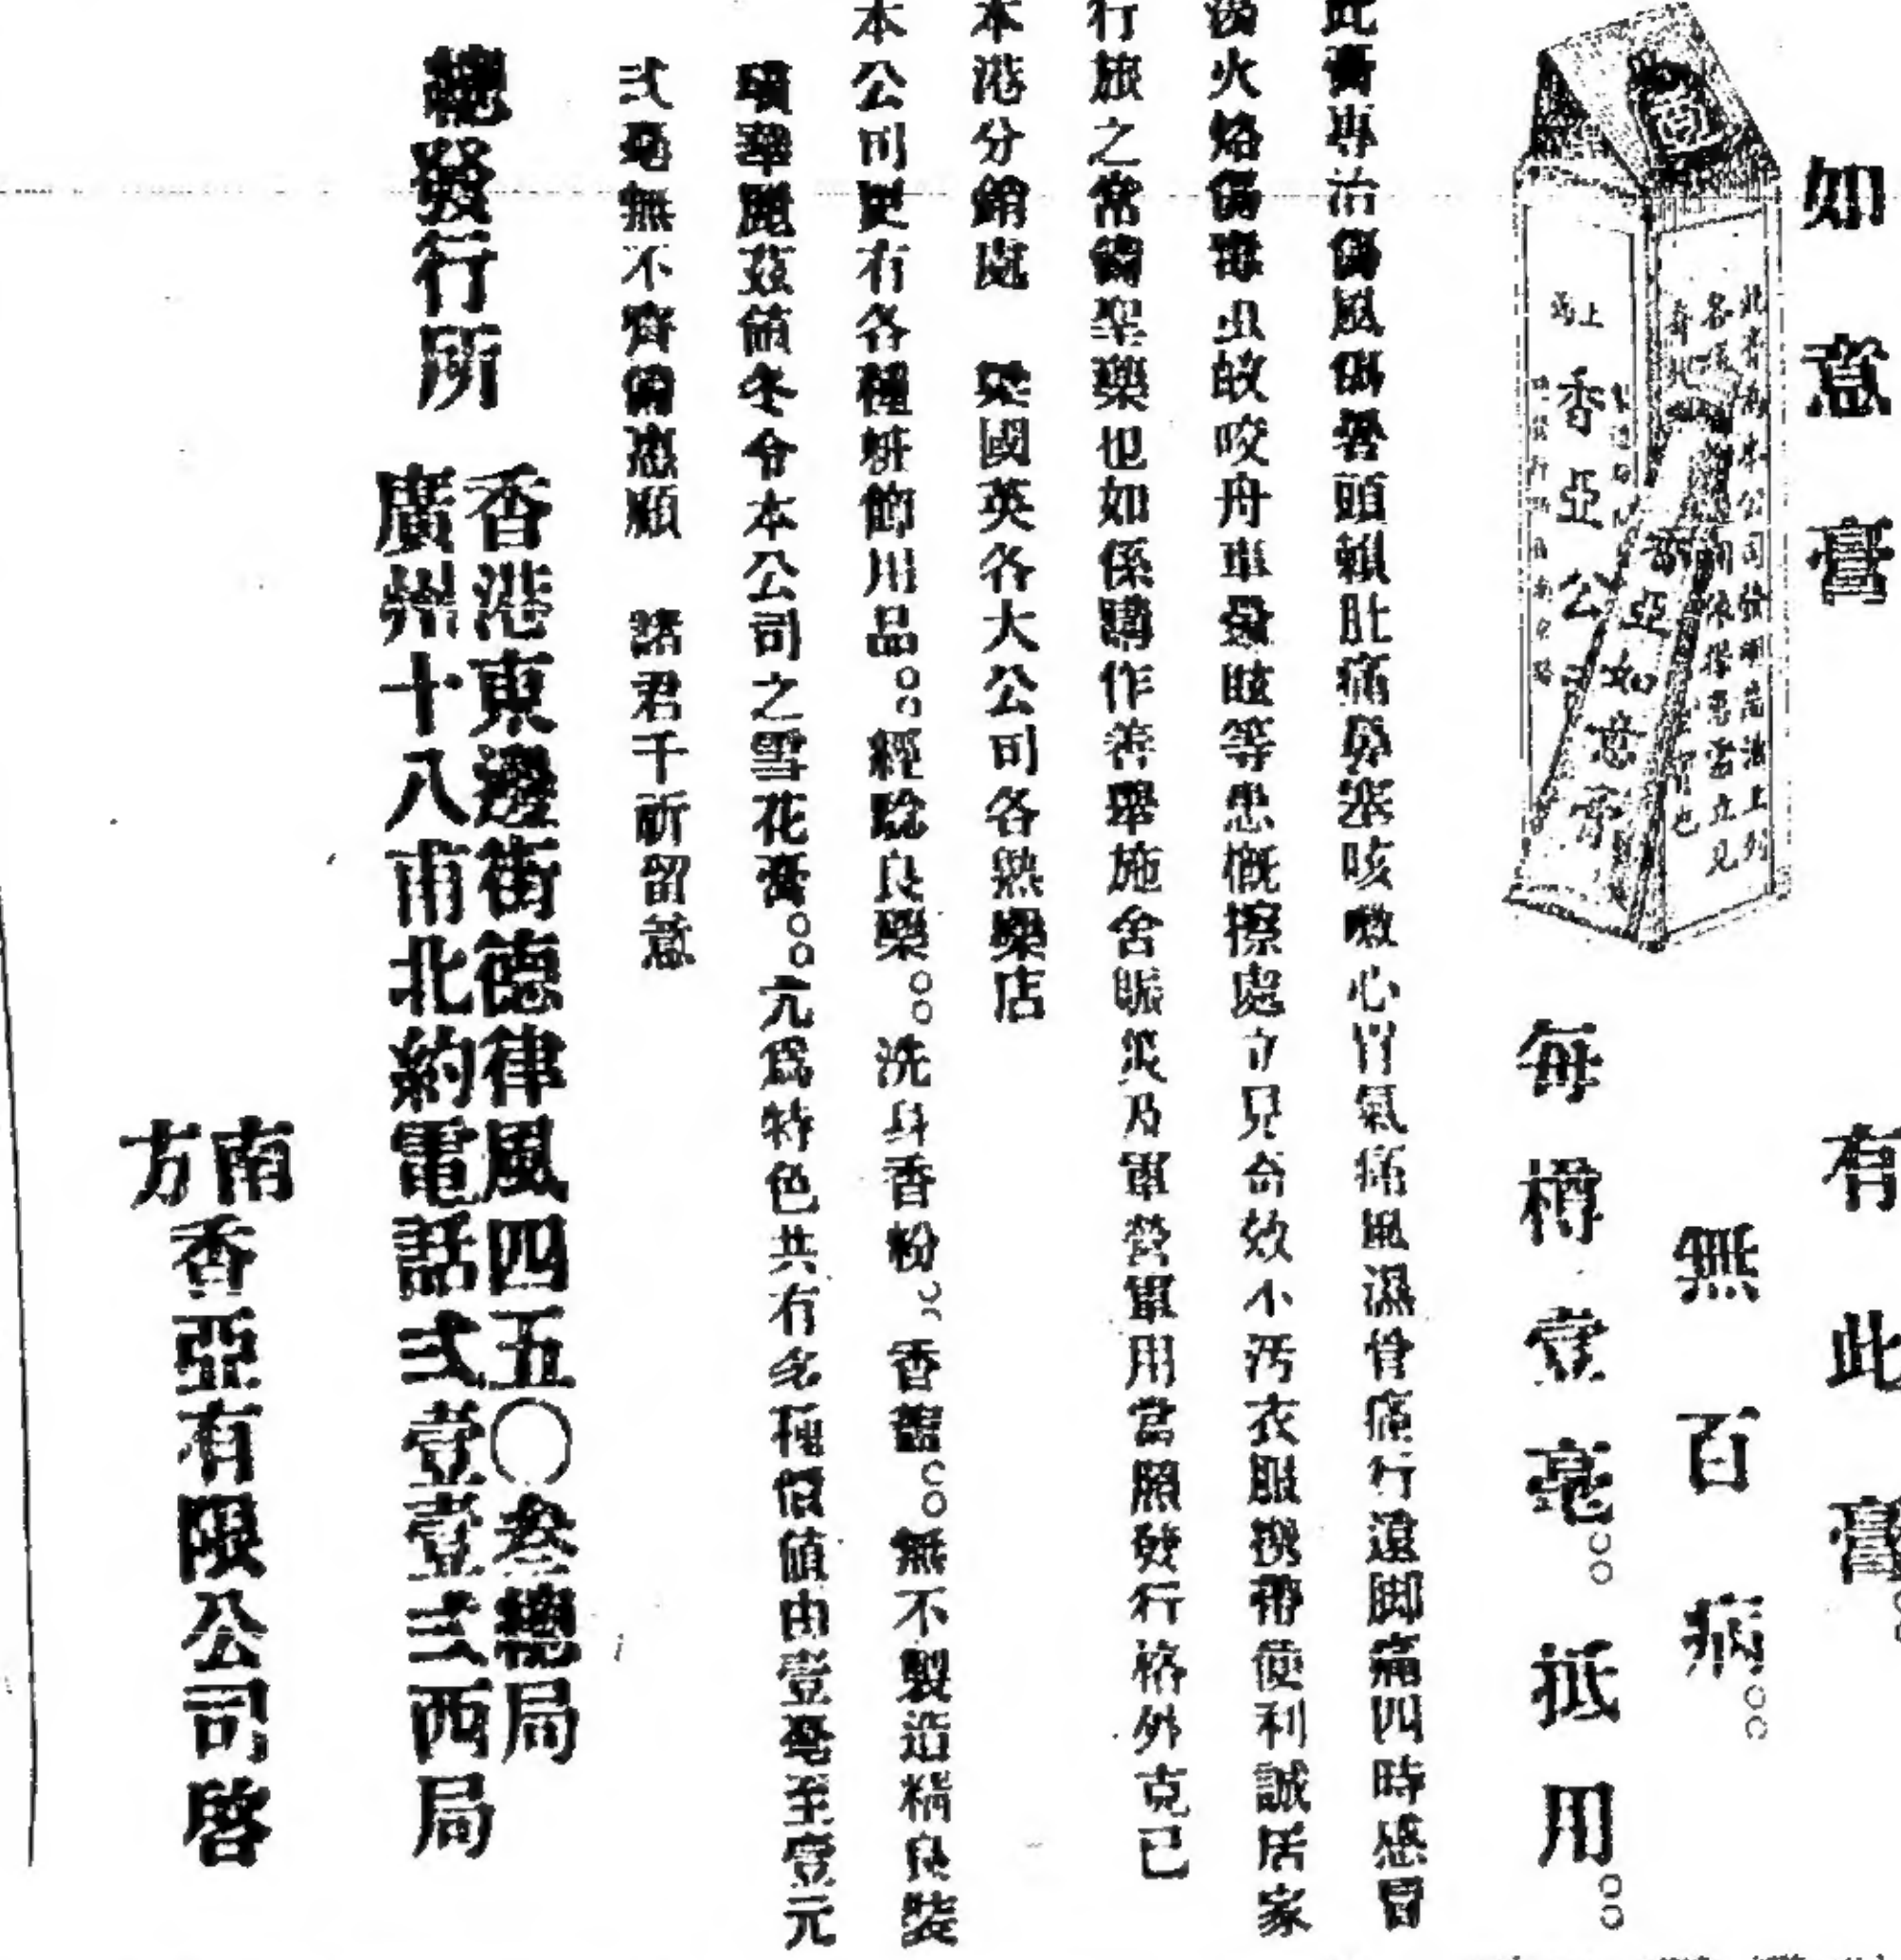 如意膏
有此膏。。
無百病。。
每樽壹毫。。抵用。。
香亞公司
香亞如意膏
此膏專治傷風傷暑頭赖肚痛鼻塞咳嗽心胃氣痛風濕骨痛行遠脚痛四時感冒
湯火烙傷毒虫蚊咬舟車暈眩等患槪擦處立見奇效不污衣服携帶便利誠居家
行旅之常備聖藥也如係購作善舉施舍賑災及軍營軍用當照發行格外克己
本港分銷處　英國英各大公司各熟藥店
本公司更有各種妍飾用品。。經驗良藥。。洗身香粉。。香囍。。無不製造精良裝
璜華麗茲値冬令本公司之雪花膏。。尤爲特色共有多種價値由壹毫至壹元
弍毫無不齊備惠顧　諸君千祈留意
總發行所
香港東邊街德律風四五〇叁總局
廣州十八甫北約電話弍壹壹弍西局
南方
香亞有限公司啓